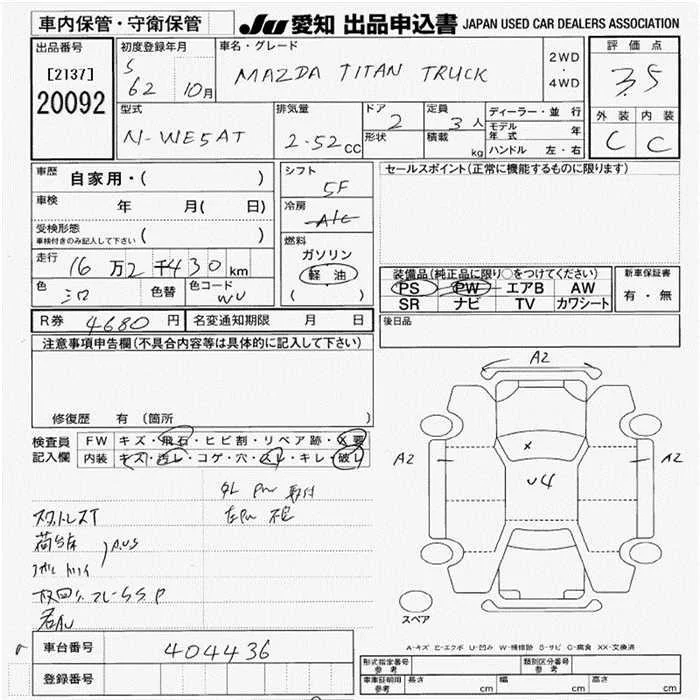 車内保管・守衛保管
JU 愛知 出品申込書 JAPAN USED CAR DEALERS ASSOCIATION
出品番号
[2137]
20092
初度登録年月
S
62 10月
車名・グレード
MAZDA TITAN TRUCK
2WD
・
4WD
評価点
3.5
外装 内装
C C
型式
N-WE5AT
排気量
2.52 CC
ドア
2
形状
定員
3 人
積載
kg
ディーラー・並行
モデル年式 年
ハンドル 左・右
車歴
自家用・( )
車検
年 月( 日)
受検形態
車検付きのみ記入して下さい ( )
走行
16万2千430km
色
色替
色コード
WU
シフト
5F
冷房
A/C
燃料
ガソリン
軽油
( )
セールスポイント(正常に機能するものに限ります)
装備品(純正品に限り○をつけてください)
PS PW エアB AW
SR ナビ TV カワシート
新車保証書
有・無
R券 4680 円 名変通知期限 月 日
後日品
注意事項申告欄(不具合内容等は具体的に記入して下さい)
修復歴 有 (箇所 )
検査員
記入欄
FW キズ・飛石・ヒビ割・リペア跡・X要
内装 キズ・汚レ・コゲ・穴・スレ・キレ・破レ
A2
A2
A2
x
U4
スペア
A-キズ E-エクボ U-凹み W-補修跡 S-サビ C-腐食 XX-交換済
車台番号 404436
登録番号
形式指定番号
参考
類別区分番号
参考
車庫証明用
参考
長さ cm 幅 cm 高さ cm